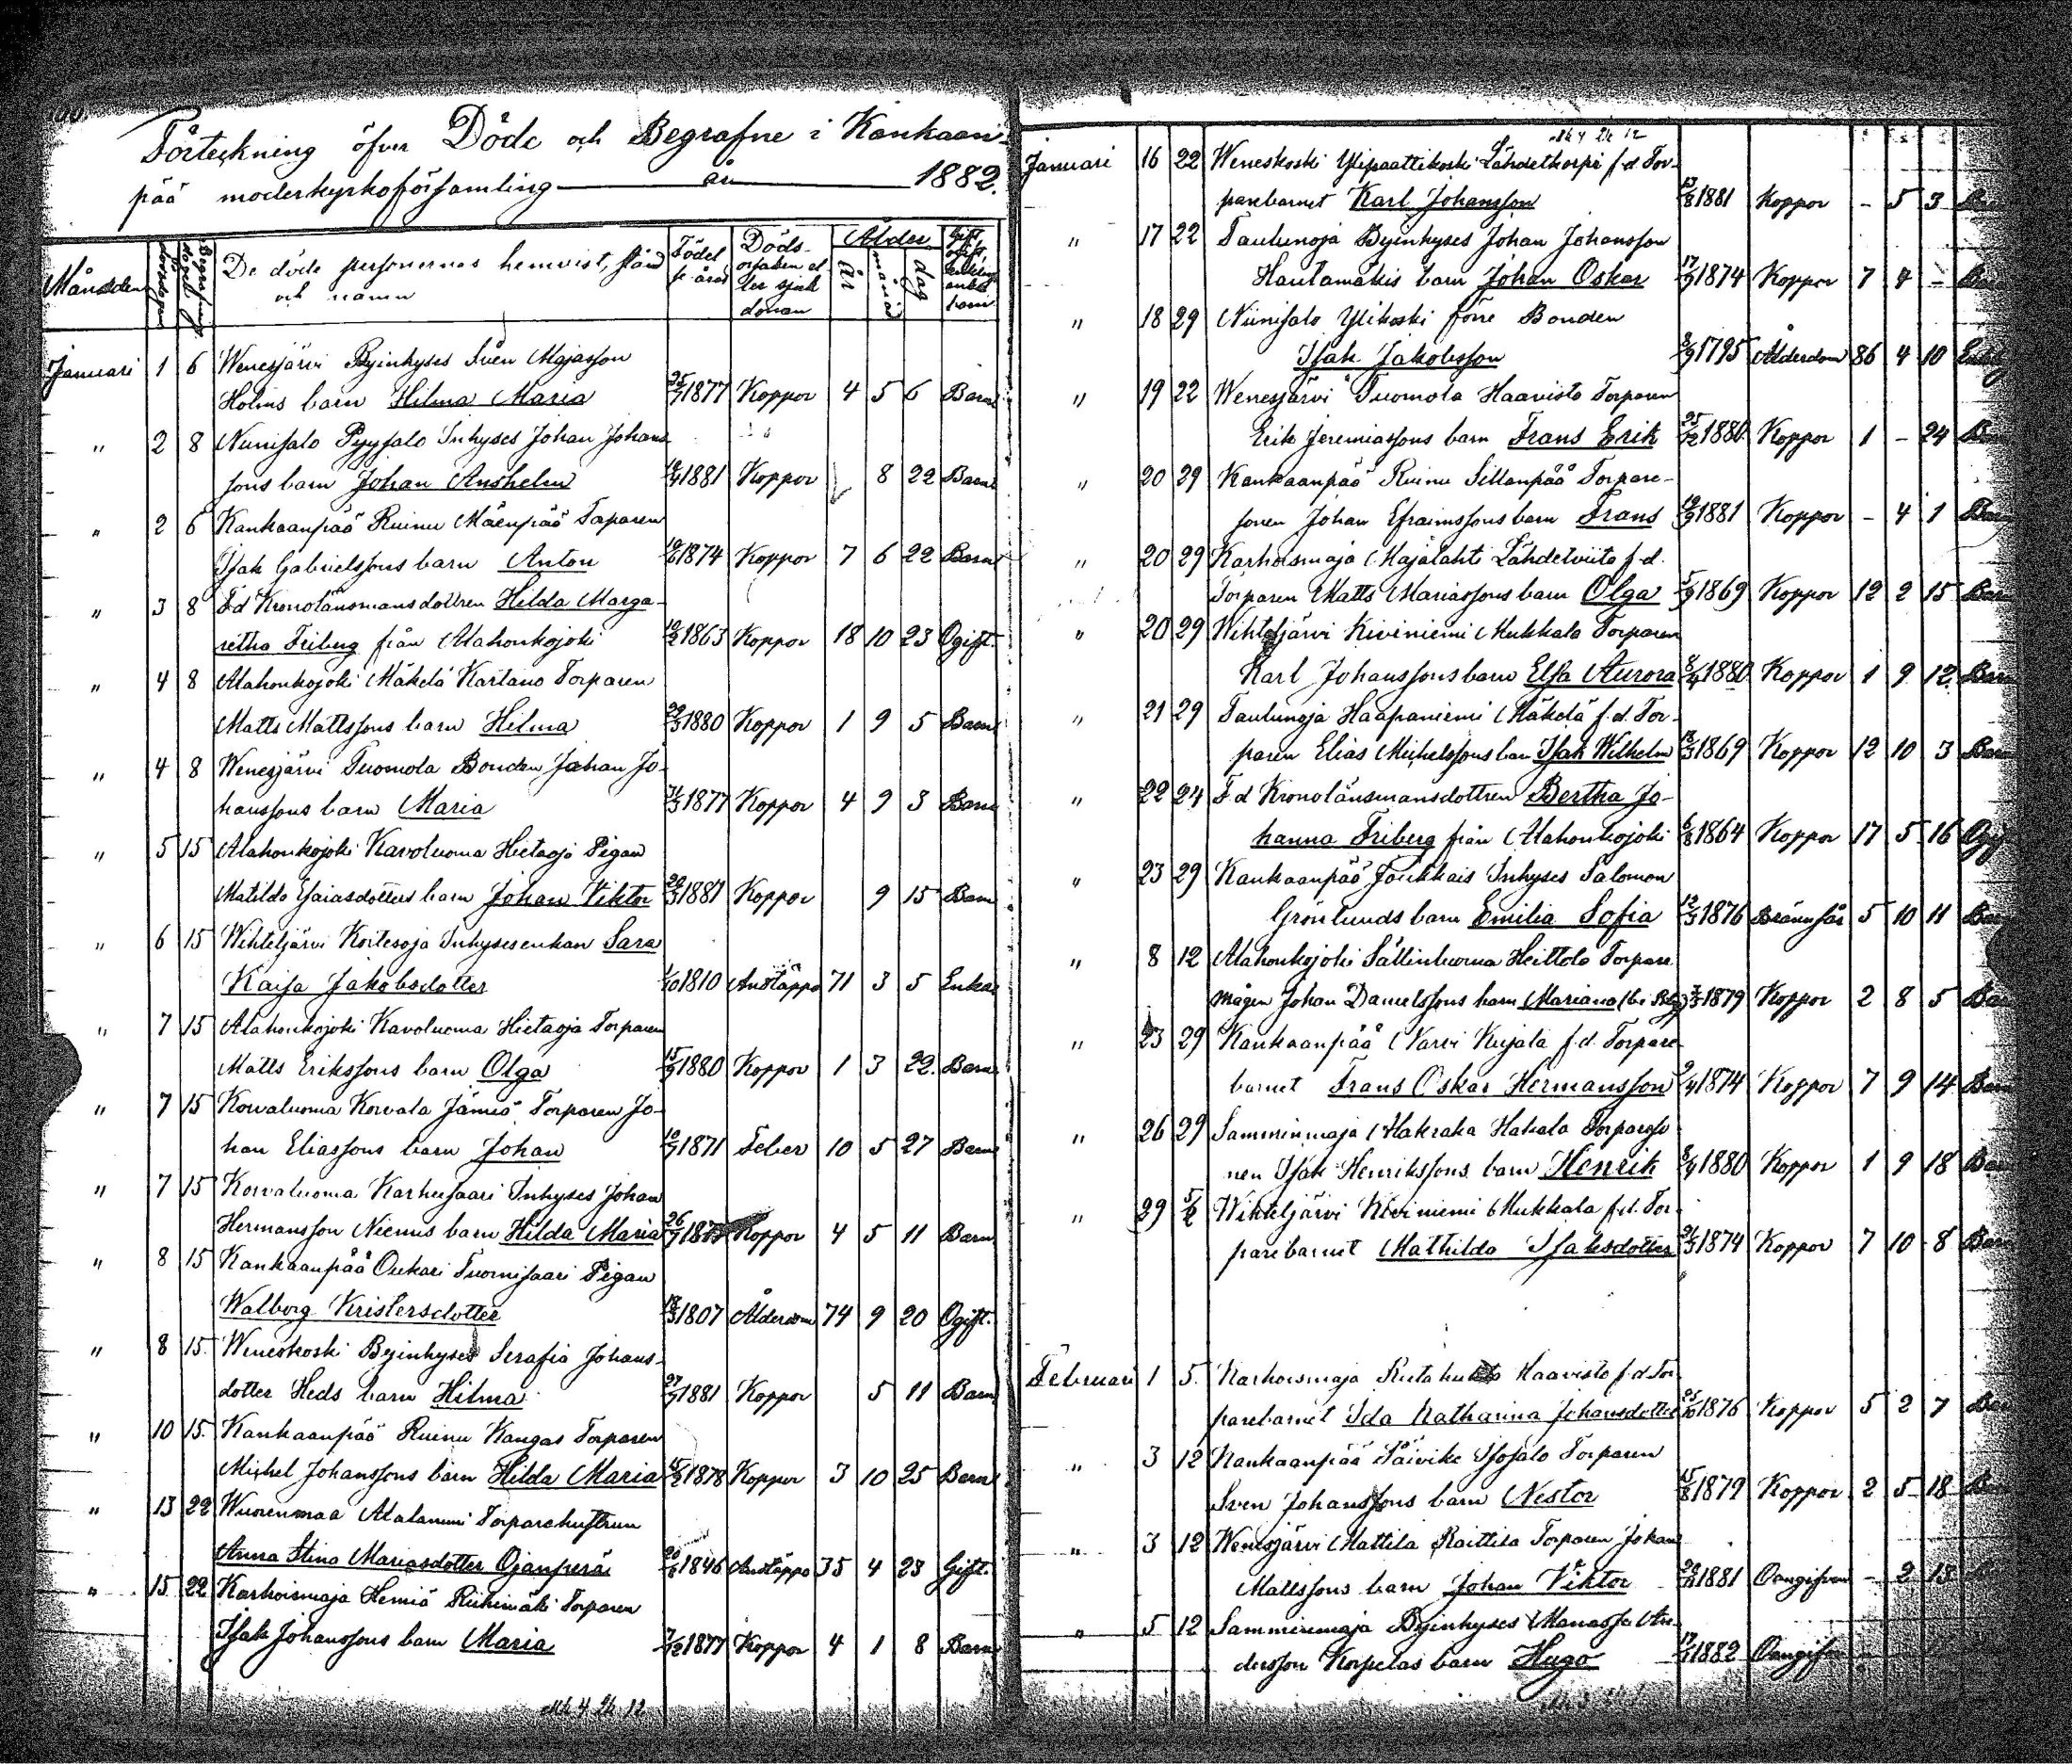 Förteckning öfver Döde och Begrafne i Kankaan-
pää moderkyrkoförsamling år 1882.
Månaden De döde personernas hemvist, stånd och namn Födel Döds- Ålder
år månad dag
Januari 1 6 Wenesjärvi Byinhyses Sven Majasson
Holms barn Hilma Maria 25/7 1877 Koppor 4 5 6 Barn
" 2 8 Niinisalo Pyysalo Inhyses Johan Johans
sons barn Johan Anshelm 1881 Koppor 8 22 Barn
" 2 6 Kankaanpää Ruinu Mäenpää Torparen
Isak Gabrielssons barn Anton 10/6 1874 Koppor 7 6 22 Barn
" 3 8 F d Kronolänsmansdottren Hilda Marga-
retha Friberg från Alahonkojoki 10/2 1863 Koppor 18 10 23 Ogift.
" 4 8 Alahonkojoki Mäkelä Kartano Torparen
Matts Mattssons barn Hilma 29/3 1880 Koppor 1 9 5 Barn
" 4 8 Wenesjärvi Tuomola Bonden Johan Jo-
hanssons barn Maria 1877 Koppor 4 9 3 Barn
" 5 15 Alahonkojoki Karoluoma Hietaoja Pigan
Matilda Esaiasdotters barn Johan Viktor 20/3 1881 Koppor 9 15 Barn
" 6 15 Wihteljärvi Koitesoja Inhysesenkan Sara
Kaisa Jakobsdotter 1/10 1810 Andtäppa 71 3 5 Enka
" 7 15 Alahonkojoki Karoluoma Hietaoja Torparen
Matts Erikssons barn Olga 15/9 1880 Koppor 1 3 22. Barn
" 7 15 Korvaluoma Korvala Jämiä Torparen Jo-
han Eliassons barn Johan 10/7 1871 Feber 10 5 27 Barn
" 7 15 Korvaluoma Karhusaari Inhyses Johan
Hermansson Niemis barn Hilda Maria 26/7 Koppor 4 5 11 Barn
" 8 15 Kankaanpää Oukari Tuomisaari Pigan
Walborg Kristersdotter 18/3 1807 Ålderdom 74 9 20 Ogift.
" 8 15. Weneskoski Byinhyses Serafia Johans-
dotter Heds barn Hilma 27/7 1881 Koppor 5 11 Barn
" 10 15. Kankaanpää Ruinu Kangas Torparen
Michel Johanssons barn Hilda Maria 1878 Koppor 3 10 25 Barn
" 13 22 Wuorenmaa Alalammi Torparehustrun
Anna Stina Mariasdotter Ojanperä 20/8 1846 Andtäppa 35 4 23 Gift.
" 15 22 Karhoismaja Hemiä Riihimäki Torparen
Isak Johanssons barn Maria 7/12 1877 Koppor 4 1 8 Barn
Januari 16 22 Weneskoski Ylipaattikoski Lähdetkorpi f.d. Tor-
parebarnet Karl Johansson 13/8 1881 Koppor - 5 3
" 17 22 Taulunoja Byinhyses Johan Johansson
Hautamäkis barn Johan Oskar 17/9 1874 Koppor 7 4 -
" 18 29 Niinisalo Ylikoski förre Bonden
Isak Jakobsson 8/9 1795 Ålderdom 86 4 10
" 19 22 Wenesjärvi Tuomola Haavisto Torparen
Erik Jeremiassons barn Frans Erik 25/12 1880 Koppor 1 - 24
" 20 29 Kankaanpää Ruinu Sillanpää Torpare-
sonen Johan Efraimssons barn Frans 19/9 1881 Koppor - 4 1 Barn
" 20 29 Karhoismaja Majalahti Lähdeviita f.d.
Torparen Matts Mariassons barn Olga 1869 Koppor 12 2 15 Barn
" 20 29 Wihteljärvi Kiviniemi Mukkala Torparen
Karl Johanssons barn Elsa Aurora 8/4 1880 Koppor 1 9 12 Barn
" 21 29 Taulunoja Haapaniemi Mäkelä f.d. Tor-
paren Elias Michelssons barn Isak Wilhelm 18/3 1869 Koppor 12 10 3 Barn
" 22 24 F d Kronolänsmansdottren Bertha Jo-
hanna Friberg från Alahonkojoki 6/8 1864 Koppor 17 5 16
" 23 29 Kankaanpää Jouhkais Inhyses Salomon
Grönlunds barn Emilia Sofia 12/3 1876 Brännsår 5 10 11
" 8 12 Alahonkojoki Sällinluoma Heittola Torpare
mågen Johan Danielssons barn Mariana 1879 Koppor 2 8 5
" 23 29 Kankaanpää Narvi Kujala f.d. Torpare-
barnet Frans Oskar Hermansson 9/4 1874 Koppor 7 9 14 Barn
" 26 29 Samminmaja Hakala Torpareso
nen Isak Henrikssons barn Henrik 8/4 1880 Koppor 1 9 18 Barn
" 29 5/2 Wihteljärvi Kiviniemi Mukkala f.d. Tor-
parebarnet Mathilda Isaksdotter 21/3 1874 Koppor 7 10 8 Barn
Februari 1 5. Karhoismaja Haavisto f.d. Tor-
parebarnet Ida Katharina Johansdotter 25/10 1876 Koppor 5 2 7
" 3 12 Kankaanpää Päivike Isosalo Torparen
Sven Johanssons barn Nestor 15/8 1879 Koppor 2 5 18
" 3 12 Wenesjärvi Mattila Raittila Torparen Johan
Mattssons barn Johan Viktor 1881 Oangifven - 2 13
" 5 12 Samminmaja Byinhyses Manasse An-
dersson Korpelas barn Hugo 1882